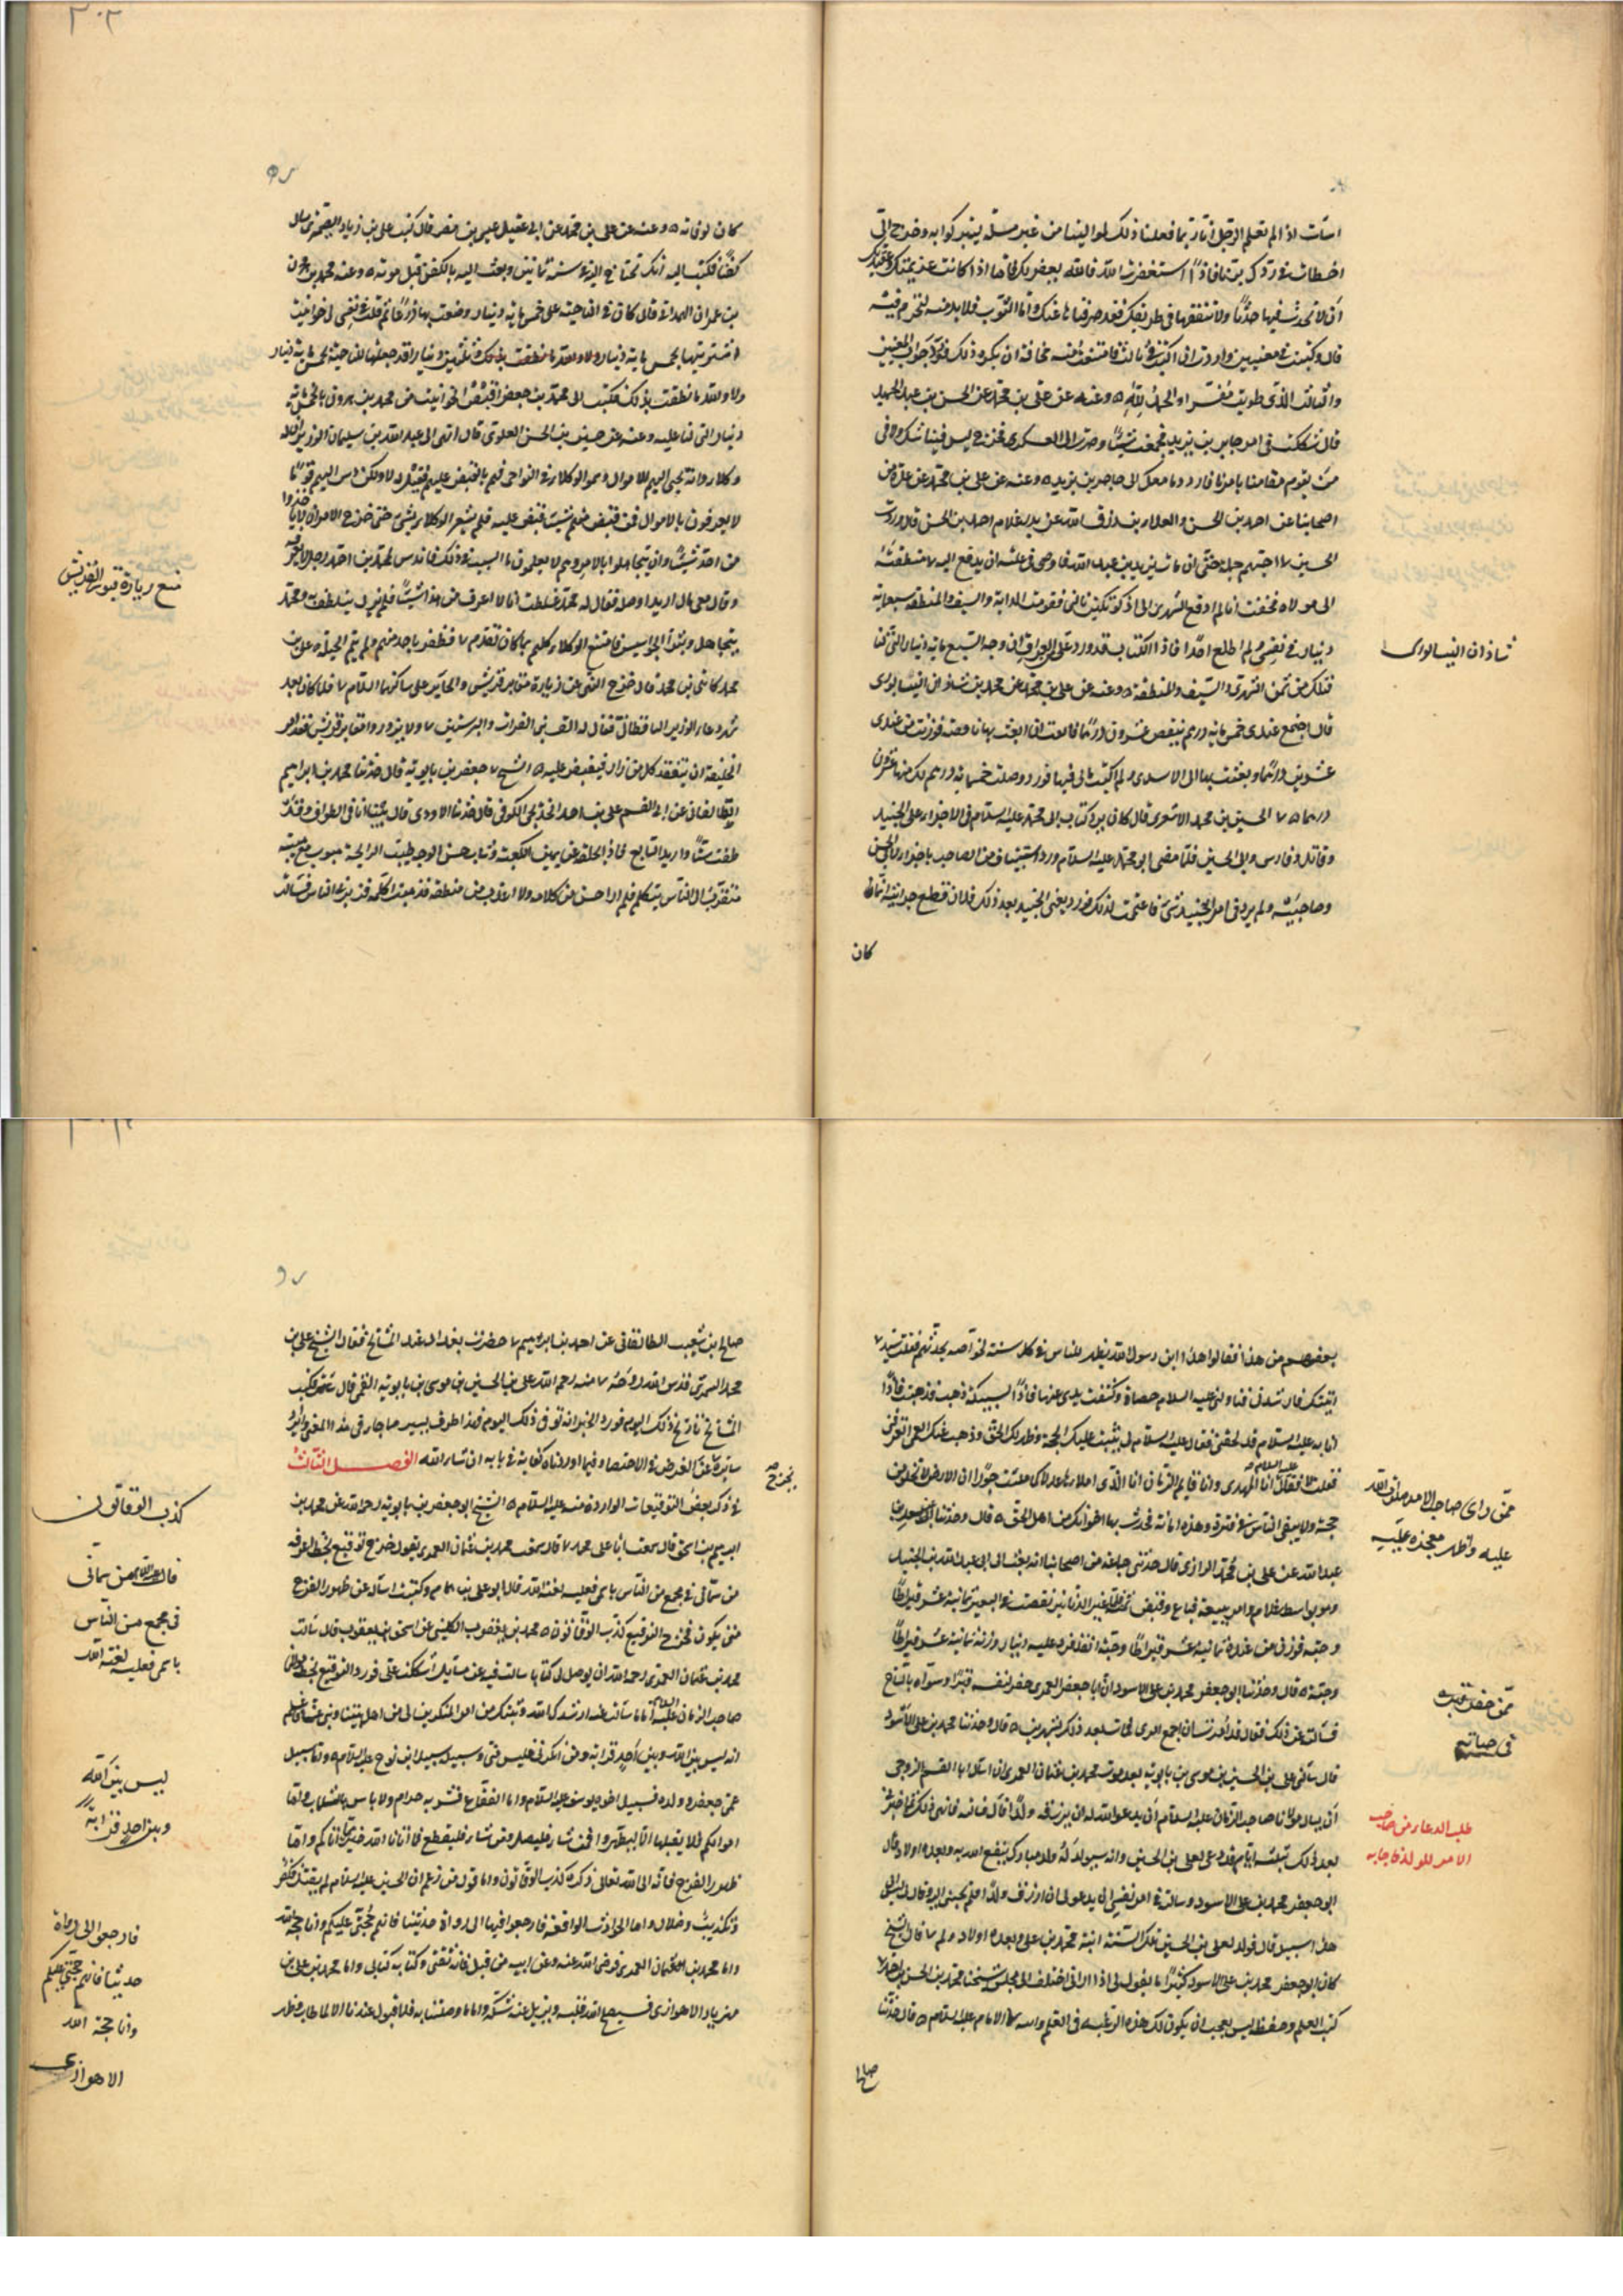 اسأت اذ لم تعلم الرجل انا ربما فعلنا ذلك بموالينا من غير مسئلة ليتبركوا به وخرج الى
اخطأت في ردك برنا فاذا استغفرت الله فالله يغفر لك فاما اذا كانت عزيمتك وعقد نيتك
ان لا تحدث فيها حدثا ولا تنفقها في طريقك فقد صرفناها عنك واما الثوب فلا بد منه لتحرم فيه
قال وكتبت في معنيين واردت ان اكتب في الثالث فامتنعت منه مخافة ان يكره ذلك فورد جواب المعنيين
والثالث الذي طويت مفسرا والحمد لله وعنه عن علي بن محمد عن الحسن بن عبد الحميد
قال شككت في امر حاجز بن يزيد فجمعت شيئا وصرت الى العسكر فخرج ليس فينا شك ولا في
من يقوم مقامنا بامرنا فاردد ما معك الى حاجز بن يزيد وعنه عن علي بن محمد عن عدة من
اصحابنا عن احمد بن الحسن والعلاء بن رزق الله عن بدر غلام احمد بن الحسن قال وردت
الجبل
الى مولاه فخفت ان لم ادفع الشهري الى اذكوتكين نالني فقومت الدابة والسيف والمنطقة بسبعمائة
دينار في نفسي ولم اطلع احدا فاذا الكتاب قد ورد علي من العراق ان وجه السبعمائة دينار التي لنا
قبلك من ثمن الشهري والسيف والمنطقة وعنه عن علي بن محمد عن محمد بن شاذان النيسابوري
قال اجتمع عندي خمسمائة درهم ينقص عشرون درهما فوزنت من عندي
عشرين درهما وبعثت بها الى الاسدي ولم اكتب ما لي فيها فورد وصلت خمسمائة درهم لك منها عشرون
درهما الحسين بن محمد الاشعري قال كان يرد كتاب ابي محمد عليه السلام في الاجراء على الجنيد
وقاتل فارس وابي الحسن فلما مضى ابو محمد عليه السلام ورد استيناف من الصاحب باجراء ابي الحسن
وصاحبه ولم يرد في امر الجنيد شيء فاغتممت لذلك فورد نعي الجنيد بعد ذلك
كان
شاذان النيسابوري
٣٠٢
كان لوفاته وعنه عن علي بن محمد عن ابي عقيل عيسى بن نصر قال كتب علي بن زياد الصيمري يسأل
كفنا فكتب اليه انك تحتاج اليه في سنة ثمانين وبعث اليه بالكفن قبل موته وعنه محمد بن هرون
بن عمران الهمداني قال كان للناحية علي خمسمائة دينار وضقت بها ذرعا ثم قلت في نفسي لي حوانيت
اشتريتها بخمسمائة دينار وثلثين دينارا قد جعلتها للناحية بخمسمائة دينار
ولا والله ما نطقت بذلك فكتب الى محمد بن جعفر اقبض الحوانيت من محمد بن هرون بالخمسمائة
دينار التي لنا عليه وعنه عن حسين بن الحسن العلوي قال انهى الى عبيد الله بن سليمان الوزير ان له
وكلاء وانه يجبى اليهم الاموال وسموا الوكلاء في النواحي فهم بالقبض عليهم فقيل له لا ولكن دس اليهم قوما
لا يعرفون بالاموال فمن قبض منهم شيئا قبض عليه فلم يشعر الوكلاء بشيء حتى خرج الامر ان لا ياخذوا
من احد شيئا وان يتجاهلوا بالامر وهم لا يعلمون ما السبب في ذلك فاندس لمحمد بن احمد رجل لا يعرفه
وقال معي مال اريد اوصله فقال له محمد غلطت انا لا اعرف من هذا شيئا فلم يزل يتلطفه ومحمد
يتجاهل وبثوا الجواسيس فامتنع الوكلاء كلهم بما كان تقدم فلم يظفر باحد منهم ولم تتم الحيلة علي بن
محمد قال خرج النهي عن زيارة مقابر قريش والحاير على ساكنها السلام فلما كان بعد
شهر دعا الوزير الباقطاني فقال له الق بني الفرات والبرسيين ولا يزوروا مقابر قريش فقد امر
الخليفة ان يتفقد كل من زار فيقبض عليه الشيخ ابو جعفر بن بابويه قال حدثنا محمد بن ابراهيم
الطالقاني عن ابي القسم علي بن احمد الخديجي الكوفي قال حدثنا الاودي قال بينا انا في الطواف وقد
طفت ستا واريد السابع فاذا بحلقة عن يمين الكعبة وشاب حسن الوجه طيب الرايحة هيوب مع هيبته
متقرب الى الناس يتكلم فلم ار احسن من كلامه ولا اعذب من منطقه فذهبت اكلمه فزبرني الناس فسألت
منع زيارة قبور القريش
بعضهم من هذا فقالوا هذا ابن رسول الله يظهر للناس في كل سنة لخواصه يحدثهم فقلت سيدي
اتيتك فارشدني فناولني عليه السلام حصاة وكشفت يدي عنها فاذا بسبيكة ذهب فذهبت فاذا
انا به عليه السلام قد لحقني فقال عليه السلام لي ثبتت عليك الحجة وظهر لك الحق وذهب عنك العمى اتعرفني
فقلت لا فقال انا المهدي وانا قايم الزمان انا الذي املاها عدلا كما ملئت جورا ان الارض لا تخلو من
حجة ولا يبقى الناس في فترة وهذه امانة فحدث بها اخوانك من اهل الحق قال وحدثنا سعد بن
عبد الله عن علي بن محمد الرازي قال حدثني جماعة من اصحابنا انه بعث الى ابي عبد الله بن الجنيد
وهو بواسط غلاما وامر ببيعه فباع وقبض ثمنه فلما عير الدنانير نقصت في التعيير ثمانية عشر قيراطا
وحبة فوزن من عنده ثمانية عشر قيراطا وحبة وانفذ فرد عليه دينار وزنه ثمانية عشر قيراطا
وحبة قال وحدثنا ابو جعفر محمد بن علي الاسود ان ابا جعفر العمري حفر لنفسه قبرا وسواه بالساج
فسألته عن ذلك فقال قد امرت ان اجمع امري فمات بعد ذلك بشهرين قال وحدثنا محمد بن علي الاسود
قال سألني علي بن الحسين بن موسى بن بابويه بعد موت محمد بن عثمان العمري ان اسأل ابا القسم الروحي
ان يسأل مولانا صاحب الزمان عليه السلام ان يدعو الله له ان يرزقه ولدا قال فسألته فانهى ذلك فاخبرني
بعد ذلك بثلثة ايام قد دعى لعلي بن الحسين وانه سيولد له ولد مبارك ينفع الله به وبعده اولاد قال
ابو جعفر محمد بن علي الاسود وسألته في امر نفسي ان يدعو لي ان ارزق ولدا فلم يجبني اليه وقال ليس الى
هذا سبيل قال فولد لعلي بن الحسين تلك السنة ابنه محمد بن علي وبعده اولاد ولم قال الشيخ
كان ابو جعفر محمد بن علي الاسود كثيرا ما يقول لي اذا راني اختلف الى مجلس شيخنا محمد بن الحسن بن احمد
كتب العلم وحفظه ليس بعجب ان يكون لك هذه الرغبة في العلم وانت الامام عليه السلام قال حدثنا
صالح
ممن راى صاحب الامر صلوات الله
عليه وظهر معجزه عليه
ممن حفر قبره
في حياته
طلب الدعاء من صاحب
الامر للولد فاجابه
صالح بن شعيب الطالقاني عن احمد بن ابراهيم حضرت بغداد عند المشايخ فقال الشيخ علي بن
محمد السمري قدس الله روحه منه رحم الله علي بن الحسين بن موسى بن بابويه القمي قال فكتب
المشايخ تاريخ ذلك اليوم فورد الخبر انه توفى ذلك اليوم فهذا طرف يسير مما جاء في هذا المعنى وايراد
سايره يخرج عن الغرض في الاختصار وفيما اوردناه كفاية في بابه ان شاء الله الفصل الثالث
في ذكر بعض التوقيعات الواردة منه عليه السلام الشيخ ابو جعفر بن بابويه رحمه الله عن محمد بن
ابراهيم بن اسحق قال سمعت ابا علي محمد قال سمعت محمد بن عثمان العمري يقول خرج توقيع بخط اعرفه
من سماني في مجمع من الناس باسمي فعليه لعنة الله قال ابو علي بن همام وكتبت اسأله عن ظهور الفرج
متى يكون فخرج التوقيع كذب الوقاتون محمد بن يعقوب الكليني عن اسحق بن يعقوب قال سألت
محمد بن عثمان العمري رحمه الله ان يوصل لي كتابا سألت فيه عن مسايل اشكلت علي فورد التوقيع بخط مولانا
صاحب الزمان عليه السلام اما ما سألت عنه ارشدك الله وثبتك من امر المنكرين لي من اهل بيتنا وبني عمنا فاعلم
انه ليس بين الله وبين احد قرابة ومن انكرني فليس مني وسبيله سبيل ابن نوح عليه السلام واما سبيل
عمي جعفر وولده فسبيل اخوة يوسف عليه السلام واما الفقاع فشربه حرام ولا باس بالشلماب واما
اموالكم فلا نقبلها الا لتطهروا فمن شاء فليصل ومن شاء فليقطع فما اتانا الله خير مما اتاكم واما
ظهور الفرج فانه الى الله تعالى ذكره كذب الوقاتون واما قول من زعم ان الحسين عليه السلام لم يقتل فكفر
وتكذيب وضلال واما الحوادث الواقعة فارجعوا فيها الى رواة حديثنا فانهم حجتي عليكم وانا حجة الله
واما محمد بن عثمان العمري فرضي الله عنه وعن ابيه من قبل فانه ثقتي وكتابه كتابي واما محمد بن علي بن
مهزيار الاهوازي فسيصلح الله قلبه ويزيل عنه شكه واما ما وصلتنا به فلا قبول عندنا الا لما طاب وطهر
يخرج صح
كذب الوقاتون
قال عليه السلام من سماني
في مجمع من الناس
باسمي فعليه لعنة الله
ليس بين الله
وبين احد قرابة
فارجعوا الى رواة
حديثنا فانهم حجتي عليكم
وانا حجة الله
الاهوازي